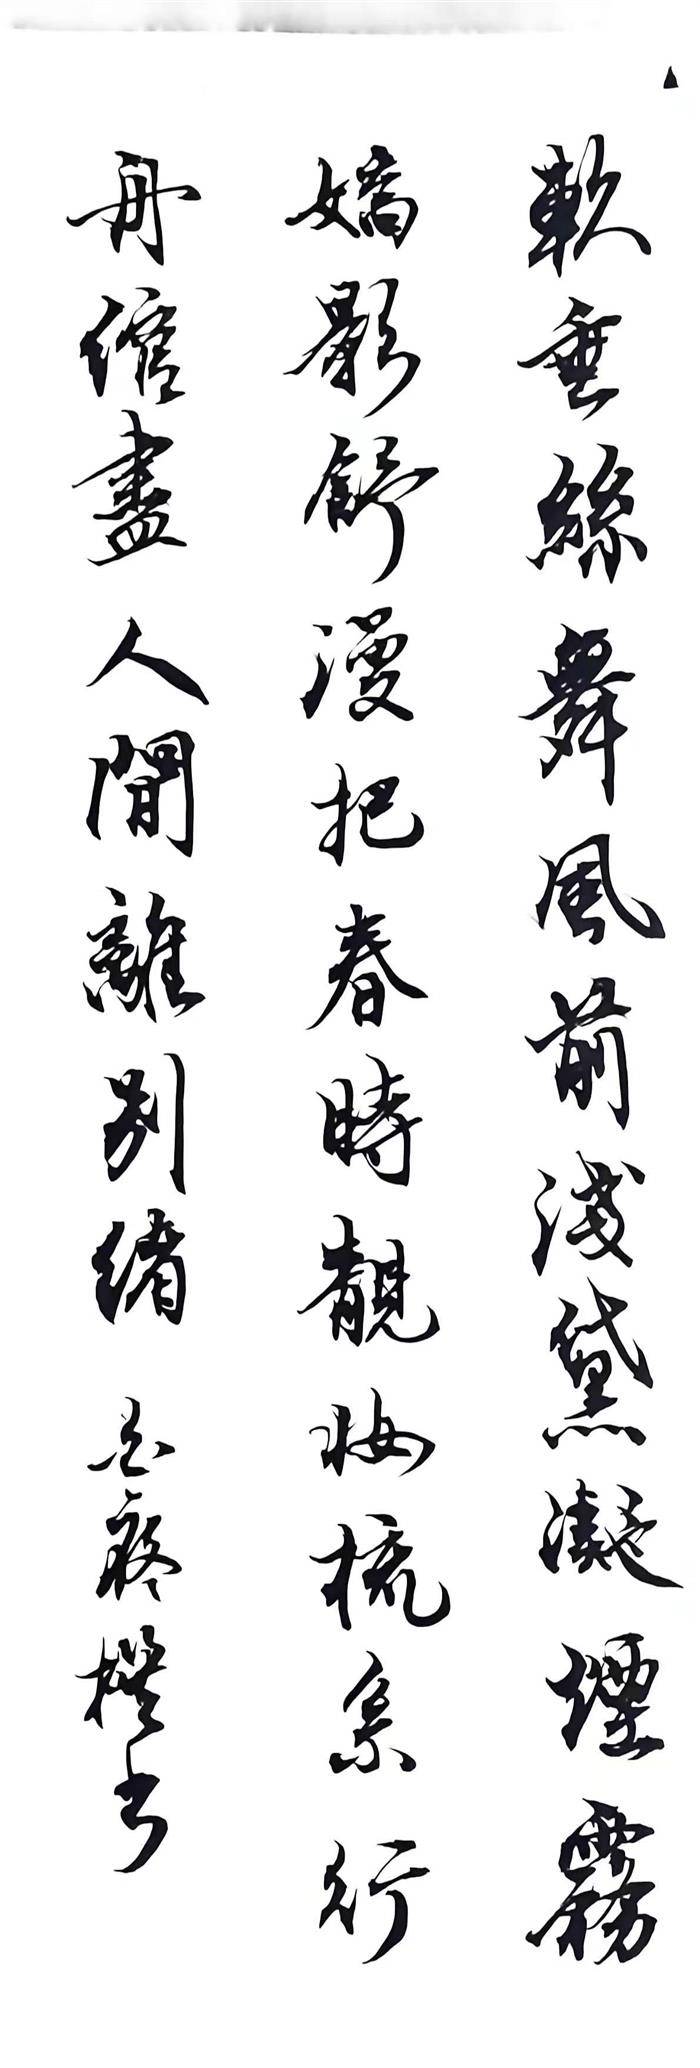 軟垂絲舞風前淺黛凝煙霧
嬌影舒漫把春時靚妝梳系行
舟綰盡人間離別緒 書